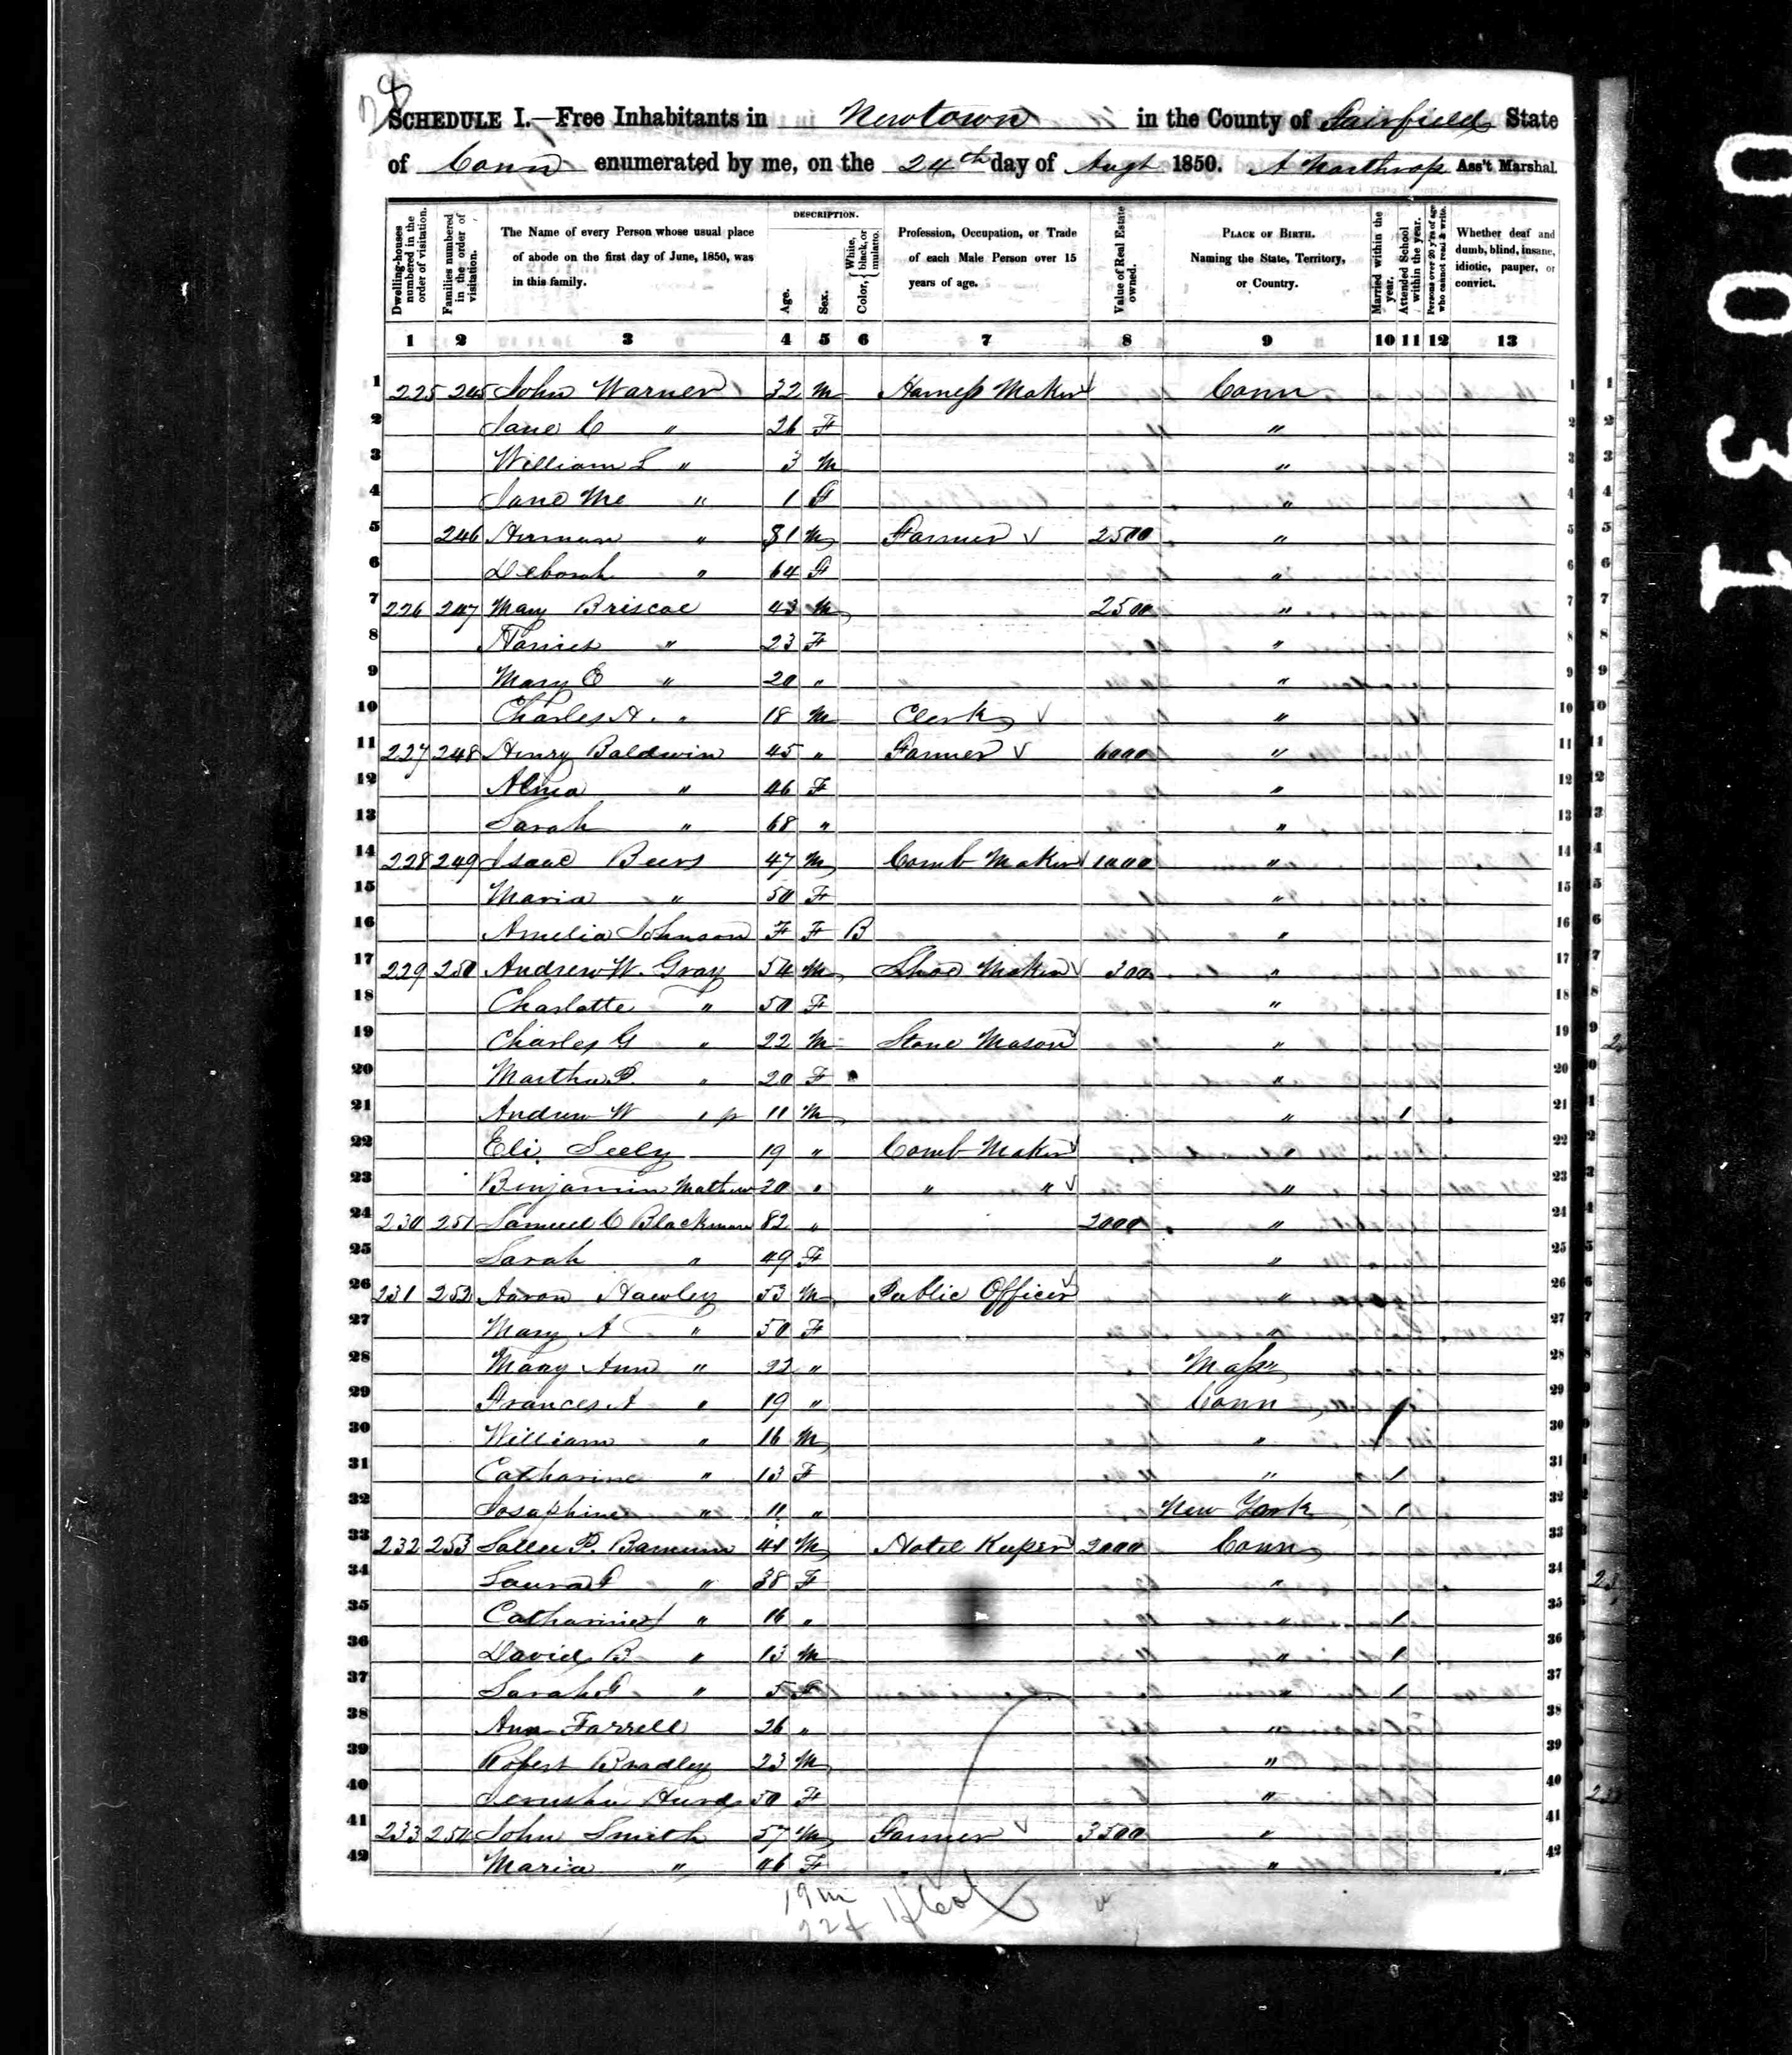 SCHEDULE I.—Free Inhabitants in Newtown in the County of Fairfield State
of Conn enumerated by me, on the 24th day of Augt 1850. A Northrop Ass't Marshal.
Dwelling-houses numbered in the order of visitation.
Families numbered in the order of visitation.
The Name of every Person whose usual place of abode on the first day of June, 1850, was in this family.
DESCRIPTION.
Age.
Sex.
Color, { White, black, or mulatto.
Profession, Occupation, or Trade of each Male Person over 15 years of age.
Value of Real Estate owned.
PLACE OF BIRTH. Naming the State, Territory, or Country.
Married within the year.
Attended School within the year.
Persons over 20 y'rs of age who cannot read & write.
Whether deaf and dumb, blind, insane, idiotic, pauper, or convict.
1 2 3 4 5 6 7 8 9 10 11 12 13
1 225 245 John Warner 32 M Harness Maker Conn 1
2 Jane C " 26 F " 2
3 William L " 3 M " 3
4 Jane Mc " 1 F " 4
5 246 Herman " M Farmer 2500 " 5
6 Deborah " 64 F " 6
7 226 247 Mary Briscoe 43 M 2500 " 7
8 Harriet " 23 F " 8
9 Mary E " 20 " " 9
10 Charles A. " 18 M Clerk " 10
11 227 248 Henry Baldwin 45 " Farmer 6000 " 11
12 Alma " 46 F " 12
13 Sarah " 68 " " 13
14 228 249 Isaac Beers 47 M Comb Maker 1000 " 14
15 Maria " 50 F " 15
16 Amelia Johnson F F B " 16
17 229 250 Andrew W. Gray 54 M Shoe Maker 300 " 17
18 Charlotte " 50 F " 18
19 Charles G " 22 M Stone Mason " 19
20 Martha P. " 20 F " 20
21 Andrew W " 11 M " 1 21
22 Eli Seely 19 " Comb Maker " 22
23 Benjamin Mathew 20 " " " " 23
24 230 251 Samuel C Blackman 82 " 2000 " 24
25 Sarah " 49 F " 25
26 231 252 Aaron Hawley 53 M Public Officer " 26
27 Mary A " 50 F " 27
28 Mary Ann " 22 " Mass 28
29 Frances A " 19 " Conn 1 29
30 William " 16 M " 1 30
31 Catharine " 13 F " 1 31
32 Josaphine " 11 " New York 1 32
33 232 253 P. Barnum M Hotel Keeper 2000 Conn 33
34 Laura " 38 F " 34
35 Catharine " 16 " " 1 35
36 David B " 13 M " 1 36
37 Sarah " 5 F " 1 37
38 Ann Farrell 26 " " 38
39 Robert Bradley 23 M " 39
40 Jerusha Hurd 50 F " 40
41 233 254 John Smith 57 M Farmer 3500 " 41
42 Maria " 46 F " 42
19 m
22 f
0031